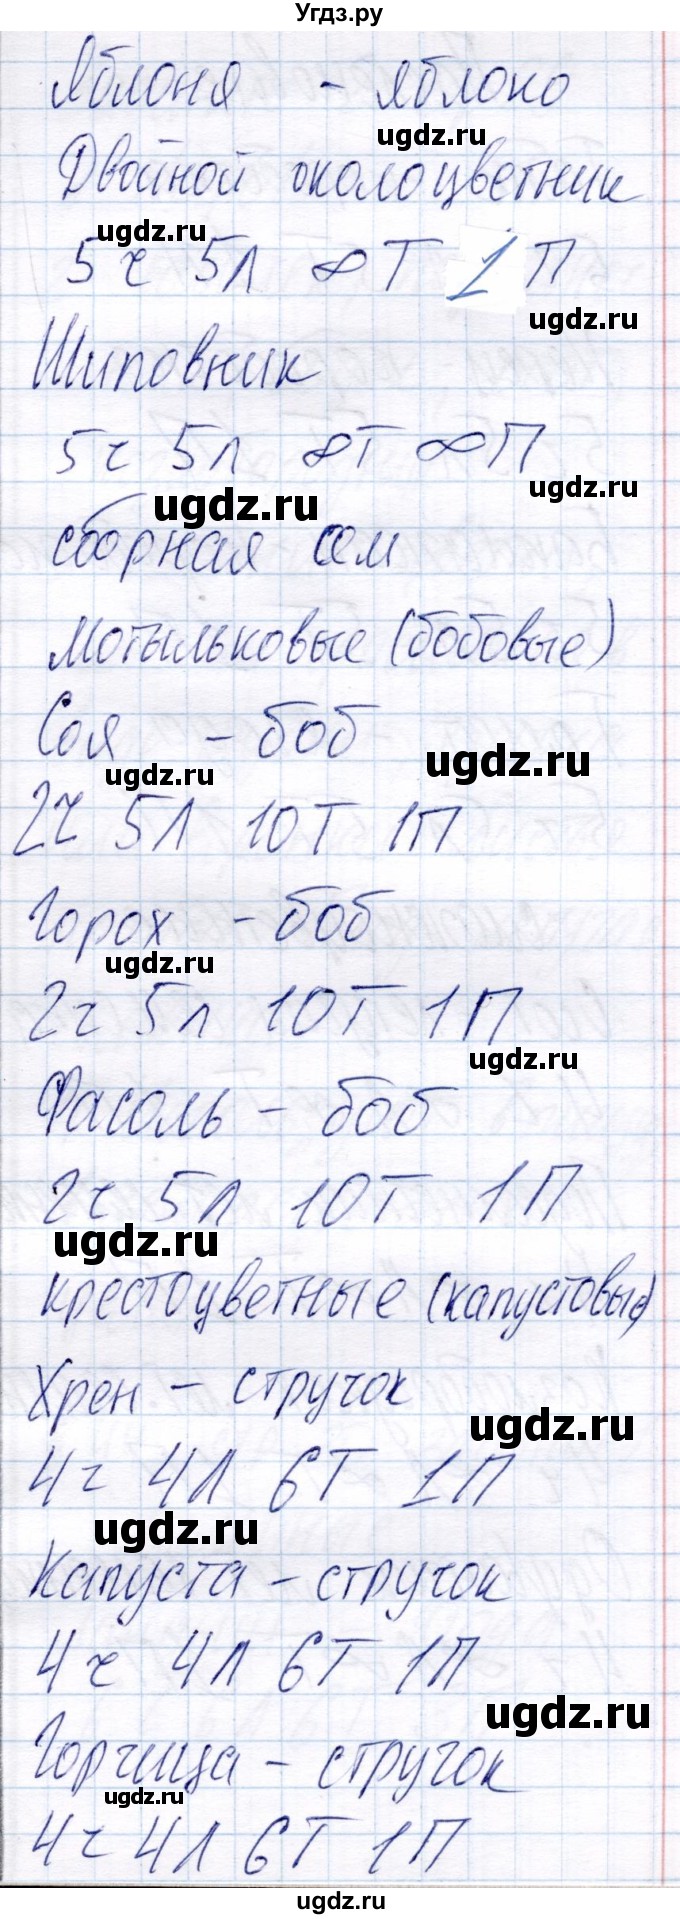 Угдз.ру
Яблоня - яблоко
ugdz.ru
Двойной околоцветник
ugdz.ru
5ч 5л ∞Т 1П
ugdz.ru
Шиповник
5ч 5л ∞Т ∞П
ugdz.ru
ugdz.ru
сборная сем
мотыльковые (бобовые)
Соя - боб
ugdz.ru
ugdz.ru
2ч 5Л 10Т 1П
Горох - боб
ugdz.ru
2ч 5л 10Т 1П
ugdz.ru
Фасоль - боб
2ч 5Л 10Т 1П
ugdz.ru
крестоцветные (капустовые)
Хрен - стручок
ugdz.ru
4ч 4Л 6Т 1П
ugdz.ru
Капуста - стручок
4ч 4Л 6Т 1П
ugdz.ru
Горчица - стручок
ugdz.ru
4ч 4Л 6Т 1П
ugdz.ru